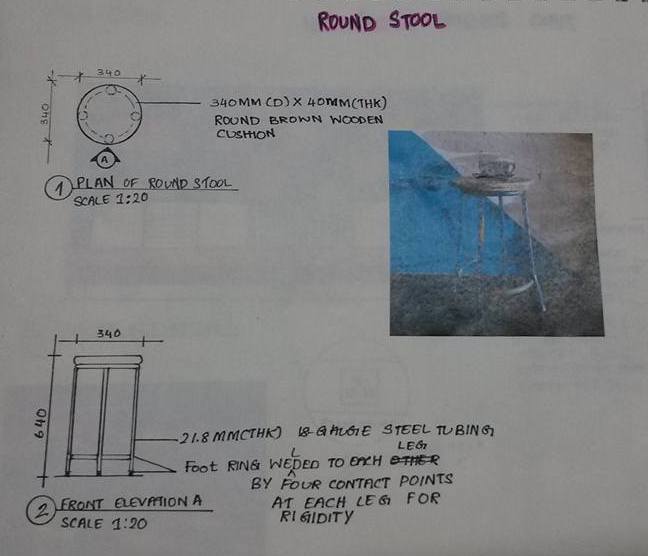 ROUND STOOL
340
340
340MM (D) X 40MM (THK)
ROUND BROWN WOODEN
CUSHION
A
1 PLAN OF ROUND STOOL
SCALE 1:20
340
640
21.8MM(THK) 18-GAUGE STEEL TUBING
LEG
FOOT RING WELDED TO EACH OTHER
BY FOUR CONTACT POINTS
AT EACH LEG FOR
RIGIDITY
2 FRONT ELEVATION A
SCALE 1:20